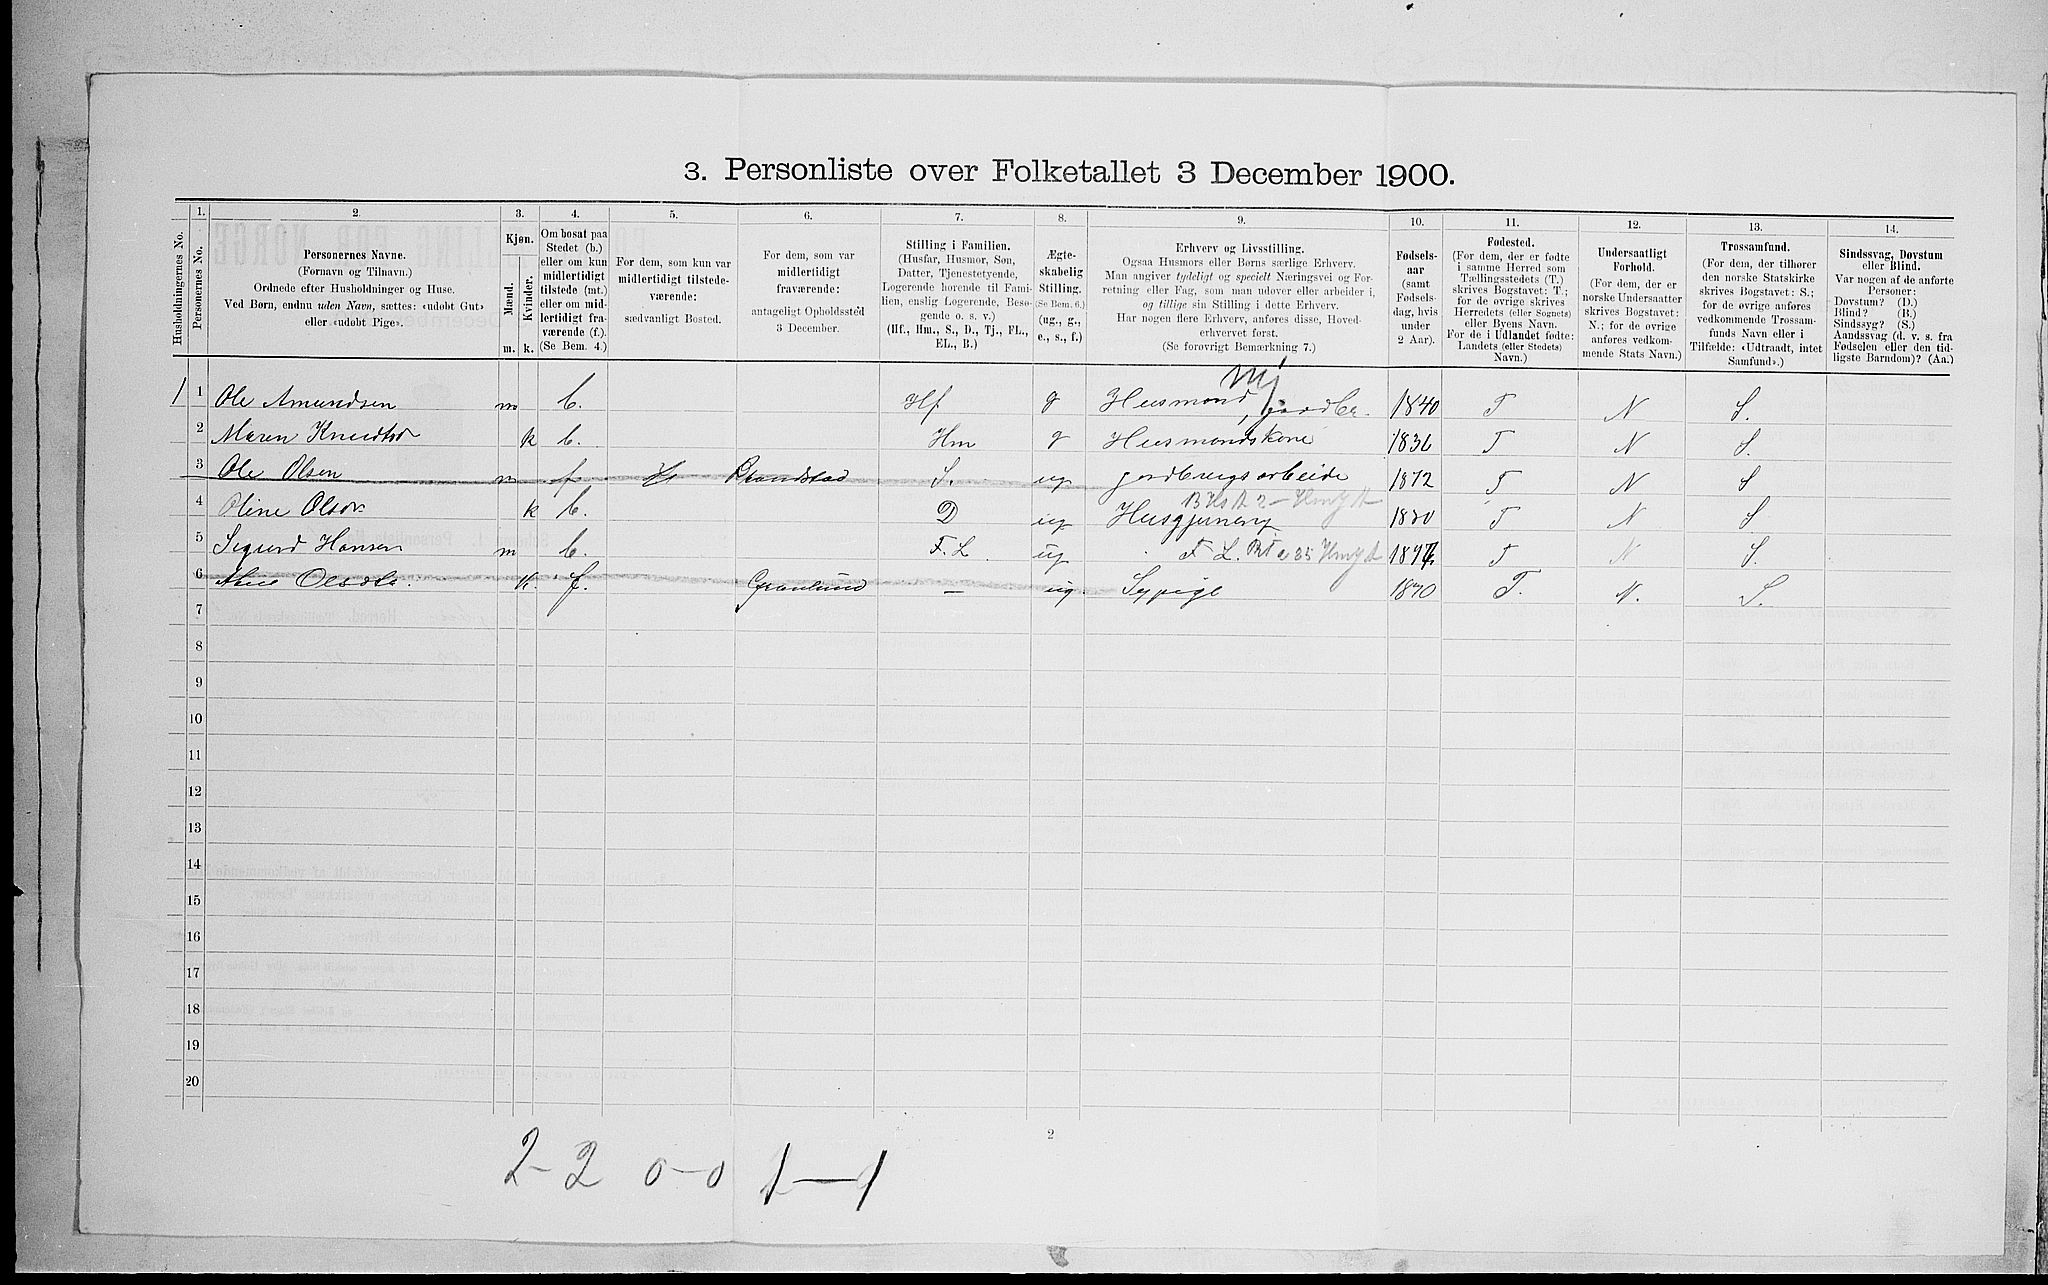 3. Personliste over Folketallet 3 December 1900.
1. 2. 3. 4. 5. 6. 7. 8. 9. 10. 11. 12. 13. 14.
Husholdningernes No.
Personernes No.
Personernes Navne.
(Fornavn og Tilnavn.)
Ordnede efter Husholdninger og Huse.
Ved Børn, endnu uden Navn, sættes: «udøbt Gut»
eller «udøbt Pige».
Kjøn.
Mænd.
Kvinder.
m. k.
Om bosat paa
Stedet (b.)
eller om kun
midlertidigt
tilstede (mt.)
eller om mid-
lertidigt fra-
værende (f.).
(Se Bem. 4.)
For dem, som kun var
midlertidigt tilstede-
værende:
sædvanligt Bosted.
For dem, som var
midlertidigt
fraværende:
antageligt Opholdssted
3 December.
Stilling i Familien.
(Husfar, Husmor, Søn,
Datter, Tjenestetyende,
Logerende hørende til Fami-
lien, enslig Logerende, Besø-
gende o. s. v.)
(Hf., Hm., S., D., Tj., FL.,
EL., B.)
Ægte-
skabelig
Stilling.
(Se Bem. 6.)
(ug., g.,
e., s., f.)
Erhverv og Livsstilling.
Ogsaa Husmors eller Børns særlige Erhverv.
Man angiver tydeligt og specielt Næringsvei og For-
retning eller Fag, som man udøver eller arbeider i,
og tillige sin Stilling i dette Erhverv.
Har nogen flere Erhverv, anføres disse, Hoved-
erhvervet først.
(Se forøvrigt Bemærkning 7.)
Fødsels-
aar
(samt
Fødsels-
dag, hvis
under
2 Aar).
Fødested.
(For dem, der er fødte
i samme Herred som
Tællingsstedets (T.)
skrives Bogstavet: T.;
for de øvrige skrives
Herredets (eller Sognets)
eller Byens Navn.
For de i Udlandet fødte:
Landets (eller Stedets)
Navn.)
Undersaatligt
Forhold.
(For dem, der er
norske Undersaatter
skrives Bogstavet:
N.; for de øvrige
anføres vedkom-
mende Stats Navn.)
Trossamfund.
(For dem, der tilhører
den norske Statskirke
skrives Bogstavet: S.;
for de øvrige anføres
vedkommende Trossam-
funds Navn eller i
Tilfælde: «Udtraadt, intet
Samfund».)
Sindssvag, Døvstum
eller Blind.
Var nogen af de anførte
Personer:
Døvstum? (D.)
Blind? (B.)
Sindssyg? (S.)
Aandssvag (d. v. s. fra
Fødselen eller den tid-
ligste Barndom)? (Aa.)
1 1 Ole Amundsen m b. Hf g Husmand, jordbr. 1840 T N S.
2 Maren Knudsdr k b. Hm g Husmandskone 1836 T N S.
3 Ole Olsen m f S. ug jordbrugsarbeide 1872 T N S
4 Oline Olsdr k b. D ug Husgjerning T N S
5 Sigurd Hansen m b. F. L ug F. L. T N S.
6 Olsdtr. k. f. Grønlund — ug. Sypige 1870 T. N. S.
7
8
9
10
11
12
13
14
15
16
17
18
19
20
2
2-2 0-0 1-1